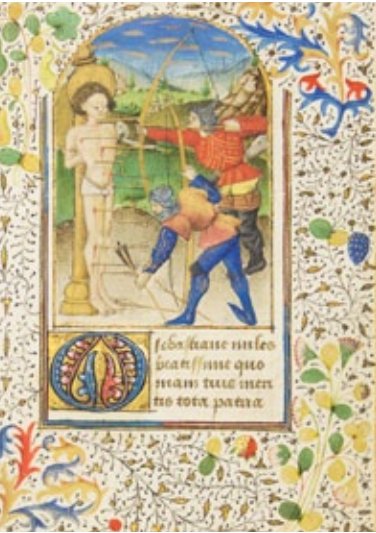 O sebastiane miles
beatissime quo
niam tuis meri
tis tota patria